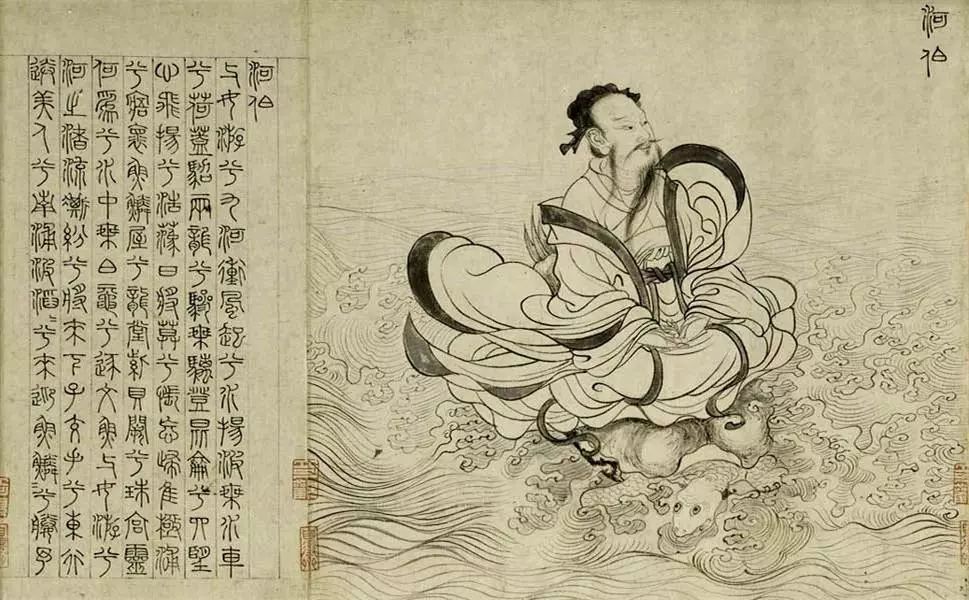 河伯
河伯
与女游兮九河衝風起兮水揚波乘水車
兮荷蓋駕兩龍兮驂乘螭登昆侖兮四望
心飛揚兮浩蕩日將莫兮悵忘歸惟極浦
兮寤懷魚鱗屋兮龍堂紫貝闕兮珠宮靈
何為兮水中乘白黿兮逐文魚与女游兮
河之渚流澌紛兮將來下子交手兮東行
送美人兮南浦波滔〻兮來迎魚鱗兮媵予